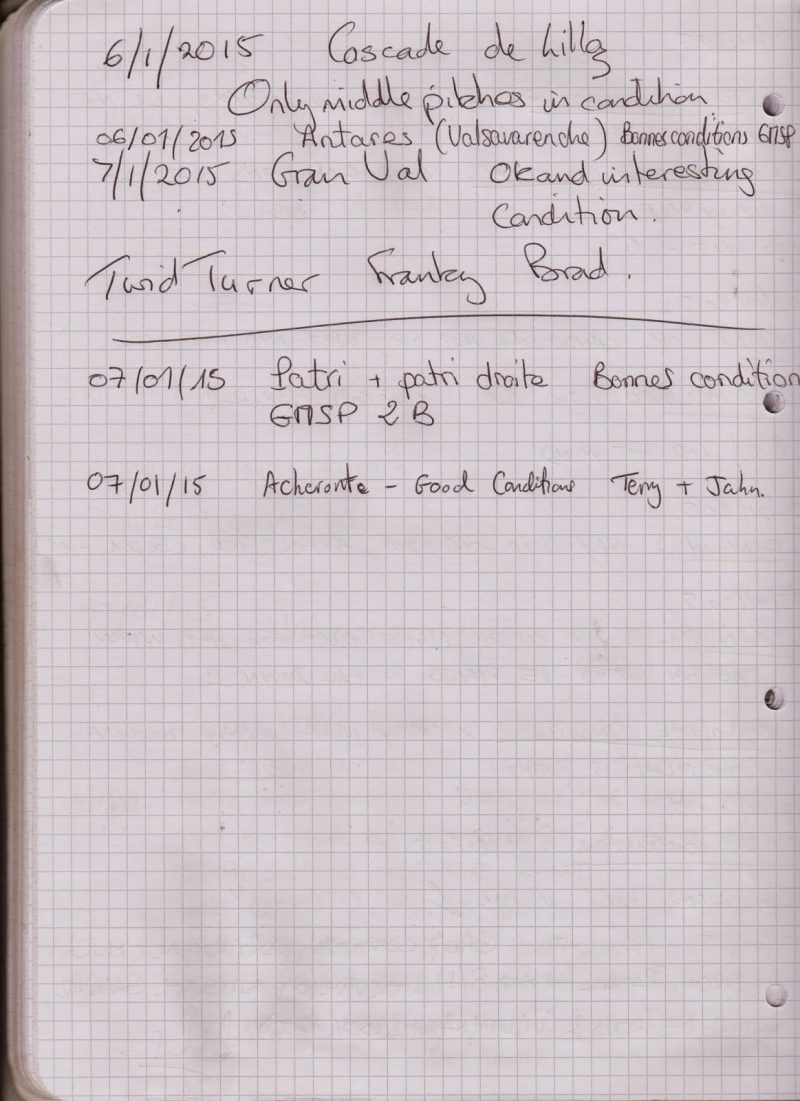 6/1/2015 Cascade de Lillaz
Only middle pitches in condition.
06/01/2015 Antares (Valsavarenche) Bonnes conditions GMSP
7/1/2015 Gran Val OK and interesting
Condition.
Turner Franky Brad.
07/01/15 Patri + patri droite Bonnes condition
GMSP 2B
07/01/15 Acheronte - Good Conditions Terry +